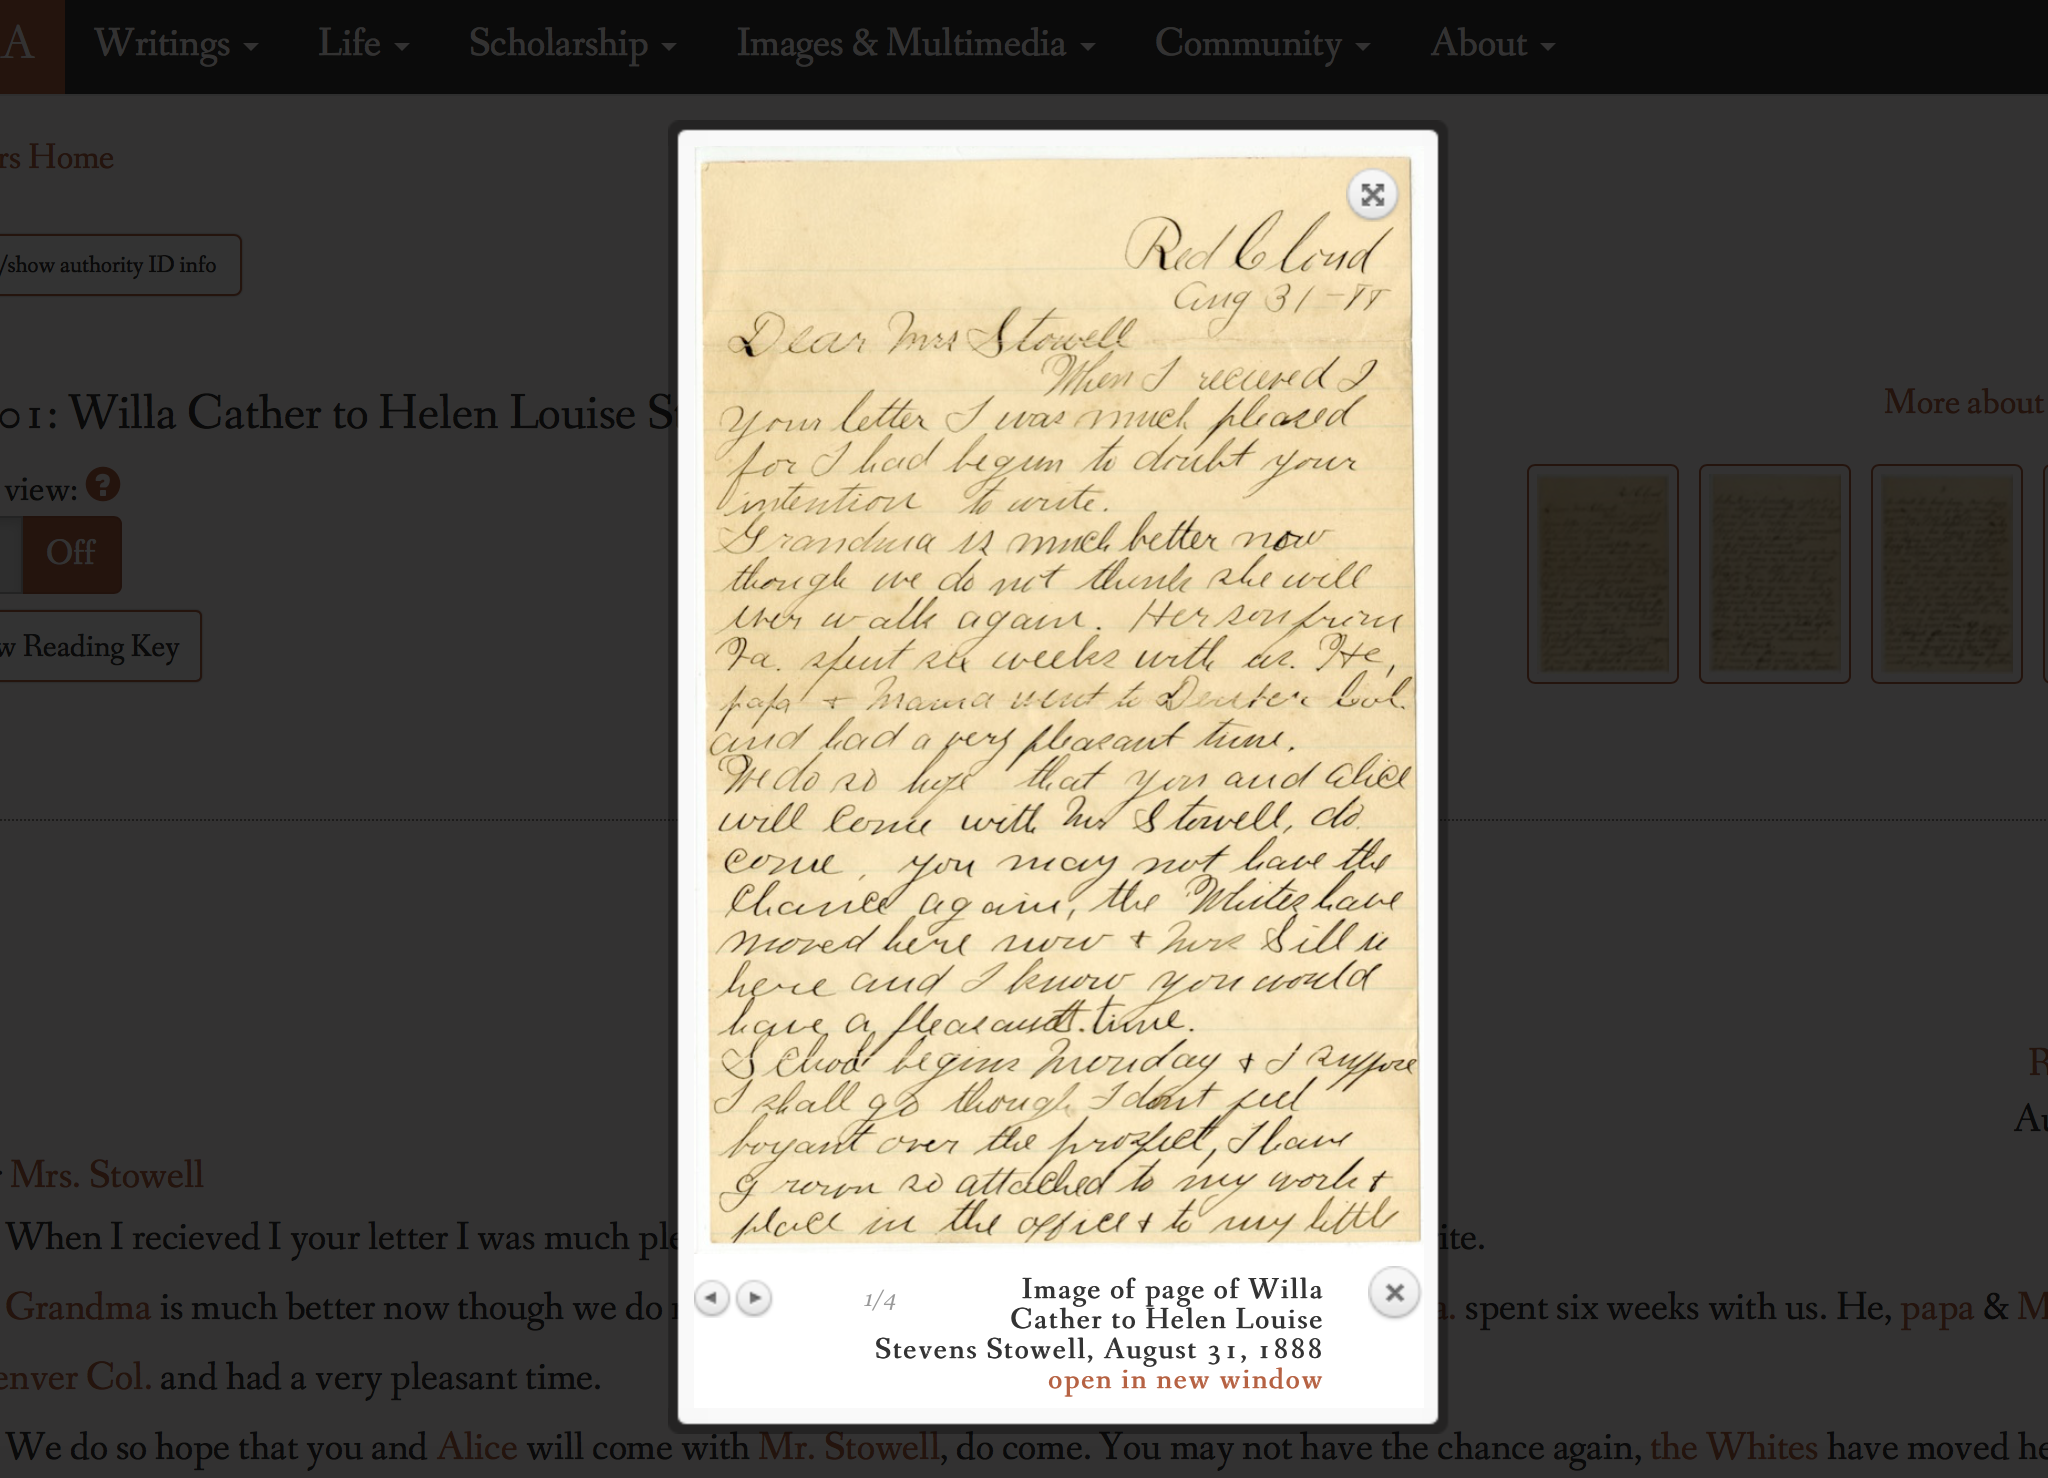 A Writings Life Scholarship Images & Multimedia Community About
rs Home
/show authority ID info
01: Willa Cather to Helen Louise S
More about
view: ?
Off
w Reading Key
Red Cloud
Aug 31-88
Dear Mrs Stowell
When I recieved I
your letter I was much pleased
for I had begun to doubt your
intention to write.
Grandma is much better now
though we do not think she will
ever walk again. Her son from
Va. spent six weeks with us. He,
papa & Mama went to Denver Col.
and had a very pleasant time.
We do so hope that you and Alice
will come with Mr Stowell, do
come, you may not have the
chance again, the Whites have
moved here now & Mrs Sill is
here and I know you would
have a pleasant time.
School begins Monday & I suppose
I shall go though I dont feel
boyant over the prospect, I have
grown so attached to my work &
place in the office & to my little
1/4
Image of page of Willa
Cather to Helen Louise
Stevens Stowell, August 31, 1888
open in new window
R
Au
Mrs. Stowell
When I recieved I your letter I was much ple
ite.
Grandma is much better now though we do
a. spent six weeks with us. He, papa & M
enver Col. and had a very pleasant time.
We do so hope that you and Alice will come with Mr. Stowell, do come. You may not have the chance again, the Whites have moved he